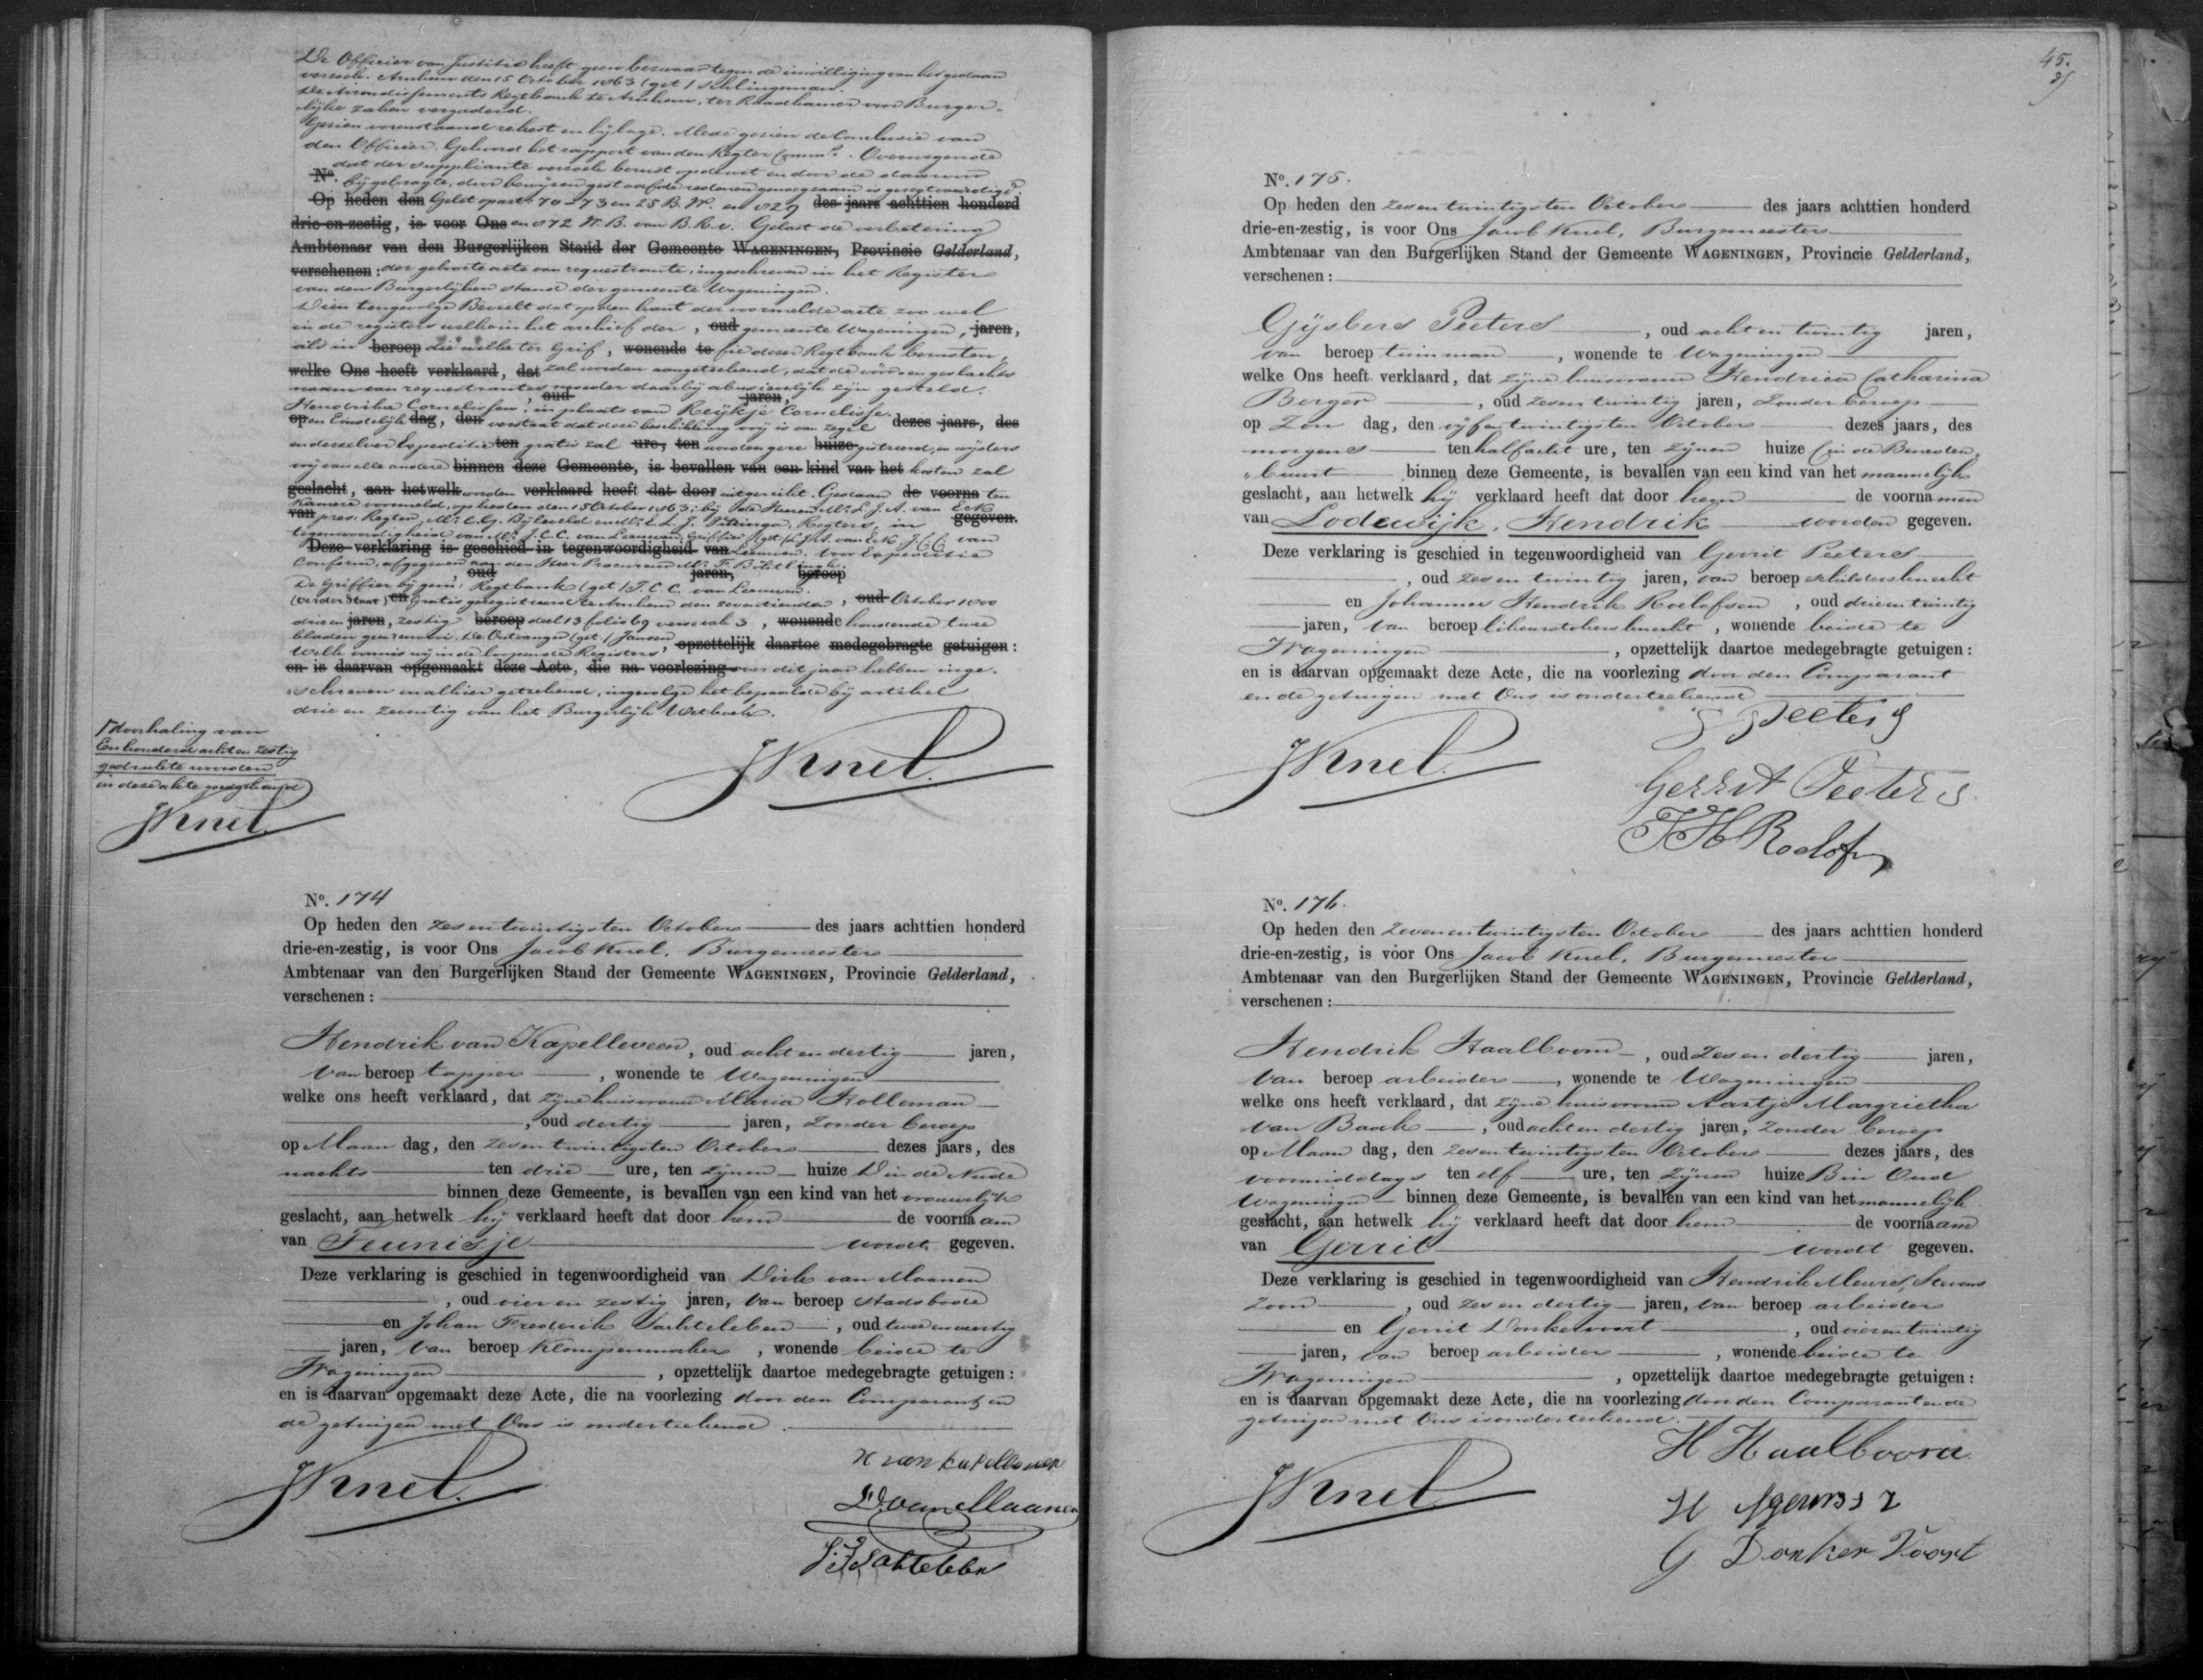 De Officier van Justitie heeft geen bezwaar tegen de inwilliging van het gedaan
verzoek. Arnhem den 15 October 1863 (get) Schlingeman.
De Arrondissements Regtbank te Arnhem, ter Raadkamer van Burger-
lijke zaken vergaderd.
Gezien vorenstaand rekest en bijlage. Mede gezien de Conclusie van
den Officier. Gehoord het rapport van den Regter Comms. Overwegende
dat der suppliante verzoek berust op de wet en door de daarvan
No. bijgebragte, door bewijzen gestaafde redenen genoegzaam is geregtvaardigd.
Op heden den Gelet op art. 70 273 en 25 B.W. en 829 des jaars achttien honderd
drie-en-zestig, is voor Ons en 872 W.B. van B.R.v. Gelast de verbetering
Ambtenaar van den Burgerlijken Stand der Gemeente WAGENINGEN, Provincie Gelderland,
verschenen: der geboorteacte van requestrante, ingeschreven in het Register
van den Burgerlijken stand der gemeente Wageningen.
Dien tengevolge Beveelt dat op den kant der voormelde acte zoo wel
in de registers welke in het archief der, oud gemeente Wageningen, jaren,
als in beroep die welke ter Grif, wonende te fie dezer Regtbank berusten,
welke Ons heeft verklaard, dat zal worden aangeteekend, dat de vóór en geslachts
naam van requestrantes moeder daarbij abusievelijk zijn gesteld
oud jaren,
Hendrika Cornelissen, in plaats van Reijkje Cornelisse.
op en Eindelijk dag, den verstaat dat deze beschikking vrij is van zegel dezes jaars, des
en derzelver Expeditie ten gratis zal ure, ten worden gere huize gistreerd, en wijders
vrij van alle andere binnen deze Gemeente, is bevallen van een kind van het kosten zal
geslacht, aan hetwelk worden verklaard heeft dat door uitgereikt. Gedaan de voorna ten
Kamere voormeld, op heden den 15 October 1863; bij de Heeren Mr. L.J.A. van Eck
van pres. Regter, Regters, in gegeven.
tegenwoordigheid van Mr. J.C.C. van Leeuwen Griffier (get) L.J.A. van Eck J.C.C. van
Deze verklaring is geschied in tegenwoordigheid van Leeuwen. Voor Expeditie
Conform, afgegeven aan den Heer Procureur Mr. F.
oud jaren, beroep
De Griffier bij gem. Regtbank (get) J.C.C. van Leeuwen.
(Verder Staat) en Gratis geregistreerd te Arnhem den zeventienden, oud October 1800
drie en jaren, zestig beroep deel 13 folio 69 verso vak 3, wonende houdende twee
bladen geen renvooi. De Ontvanger (get) Jansen opzettelijk daartoe medegebragte getuigen:
Welk vonnis wij in de loopende Registers
en is daarvan opgemaakt deze Acte, die na voorlezing over dit jaar hebben inge-
schreven en alhier geteekend, ingevolge het bepaalde bij artikel
drie en zeventig van het Burgerlijk Wetboek.
doorhaling van
Een honderd acht en zestig
gedrukte woorden
in deze akte goedgekeurd
JKnel.
JKnel.
No. 174
Op heden den zes en twintigsten October des jaars achttien honderd
drie-en-zestig, is voor Ons Jacob Knel, Burgemeester
Ambtenaar van den Burgerlijken Stand der Gemeente WAGENINGEN, Provincie Gelderland,
verschenen:
Hendrik van Kapelleveen, oud acht en dertig jaren,
van beroep tapper, wonende te Wageningen
welke ons heeft verklaard, dat zijne huisvrouw Maria Kolleman
, oud dertig jaren, zonder beroep
op Maan dag, den zes en twintigsten October dezes jaars, des
nachts ten drie ure, ten zijnen huize D in de Nude
binnen deze Gemeente, is bevallen van een kind van het vrouwelijk
geslacht, aan hetwelk hij verklaard heeft dat door hem de voorna am
van Teunisje wordt gegeven.
Deze verklaring is geschied in tegenwoordigheid van Dirk van Maanen
, oud vier en zestig jaren, van beroep stadsbode
en Johan Frederik Sachteleben, oud twee en veertig
jaren, van beroep Klompenmaker, wonende beide te
Wageningen, opzettelijk daartoe medegebragte getuigen:
en is daarvan opgemaakt deze Acte, die na voorlezing door den Comparant en
de getuigen met Ons is onderteekend.
JKnel.
H van kapelleveen
D. van Maanen
J:F Sachteleben
45.
No. 175.
Op heden den zes en twintigsten October des jaars achttien honderd
drie-en-zestig, is voor Ons Jacob Knel, Burgemeester
Ambtenaar van den Burgerlijken Stand der Gemeente WAGENINGEN, Provincie Gelderland,
verschenen:
Gijsbert Peeters, oud acht en twintig jaren,
van beroep tuinman, wonende te Wageningen
welke Ons heeft verklaard, dat zijne huisvrouw Hendrica Catharina
Berger, oud zes en twintig jaren, zonder beroep
op Zon dag, den vijf en twintigsten October dezes jaars, des
morgens ten half acht ure, ten zijnen huize C in de Beneden-
buurt binnen deze Gemeente, is bevallen van een kind van het mannelijk
geslacht, aan hetwelk hij verklaard heeft dat door hem de voorna men
van Lodewijk, Hendrik worden gegeven.
Deze verklaring is geschied in tegenwoordigheid van Gerrit Peeters
, oud zes en twintig jaren, van beroep schildersknecht
en Johannes Hendrik Roelofsen, oud drie en twintig
jaren, van beroep likeurstokersknecht, wonende beide te
Wageningen, opzettelijk daartoe medegebragte getuigen:
en is daarvan opgemaakt deze Acte, die na voorlezing door den Comparant
en de getuigen met Ons is onderteekend
JKnel.
G Peeters
Gerrit Peeters
JH Roelofsen
No. 176.
Op heden den Zeven en twintigsten October des jaars achttien honderd
drie-en-zestig, is voor Ons Jacob Knel, Burgemeester
Ambtenaar van den Burgerlijken Stand der Gemeente WAGENINGEN, Provincie Gelderland,
verschenen:
Hendrik Haalboom, oud zes en dertig jaren,
van beroep arbeider, wonende te Wageningen
welke ons heeft verklaard, dat zijne huisvrouw Aartje Margrietha
van Baak, oud acht en dertig jaren, zonder beroep
op Maan dag, den zes en twintigsten October dezes jaars, des
voormiddags ten elf ure, ten zijnen huize B in Oud
Wageningen binnen deze Gemeente, is bevallen van een kind van het mannelijk
geslacht, aan hetwelk hij verklaard heeft dat door hem de voorna am
van Gerrit wordt gegeven.
Deze verklaring is geschied in tegenwoordigheid van Hendrik Meurs, Stevens
zoon, oud zes en dertig jaren, van beroep arbeider
en Gerrit Donkervoort, oud vier en twintig
jaren, van beroep arbeider, wonende beide te
Wageningen, opzettelijk daartoe medegebragte getuigen:
en is daarvan opgemaakt deze Acte, die na voorlezing door den Comparant en de
getuigen met Ons is onderteekend.
JKnel
H Haalboom
H Meurs S z
G Donker Voort